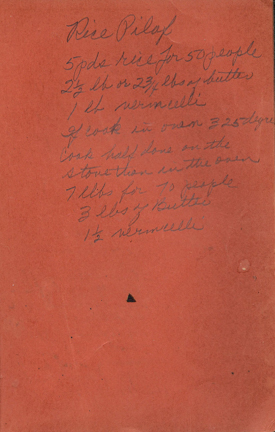 Rice Pilaf
5 pds rice for 50 people
2½ lb or 2¾ lbs of butter
1 lb vermicelli
If cook in oven 325 degre
cook half done on the
stove then in the oven
7 lbs for 70 people
3 lbs of butter
1½ vermicelli